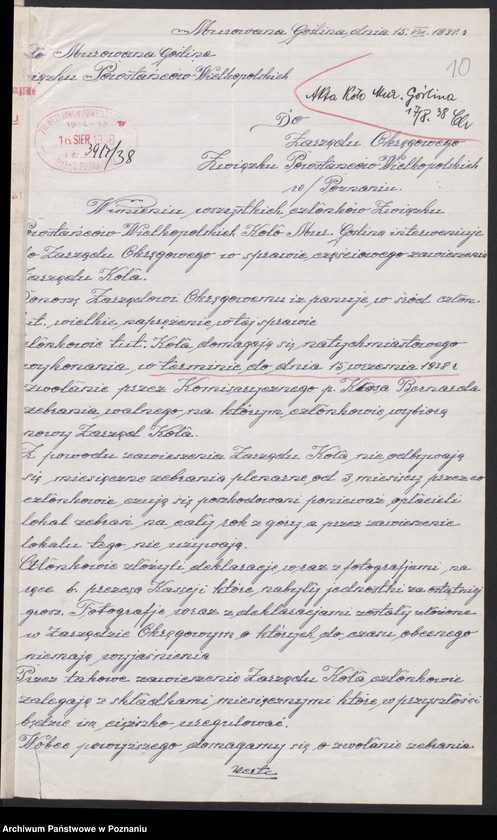 Murowana Goślina, dnia 15. VIII. 1938 r.
Murowana Goślina
Związku Powstańców Wielkopolskich
10
Akta Koło Mur. Goślina
17/8. 38
Do
Zarządu Okręgowego
Związku Powstańców Wielkopolskich
w/ Poznaniu.
1914-19
16 SIER. 1938
3917/38
W imieniu wszystkich członków Związku
Powstańców Wielkopolskich Koło Mur. Goślina interweniuje
do Zarządu Okręgowego w sprawie częściowego zawieszenia
Zarządu Koła.
Donoszę Zarządowi Okręgowemu iż panuje w śród człon.
tut. wielkie naprężenie w tej sprawie
członkowie tut. Koła domagają się natychmiastowego
wykonania w terminie do dnia 15 września 1938 r
zwołanie przez Komisarycznego p. Bernarda
zebrania walnego na którym członkowie wybiorą
nowy Zarząd Koła.
Z powodu zawieszenia Zarządu Koła nie odbywają
się miesięczne zebrania plenarne od 3 miesięcy przez co
członkowie czują się poszkodowani ponieważ opłacili
lokal zebrań na cały rok z góry a przez zawieszenie
lokalu tego nie używają.
Członkowie złożyli deklaracje wraz z fotografjami na
ręce b. prezesa Kasseji które nabyły jednostki za ostatniej
grosz. Fotografje wraz z deklaracjami zostały złożone
w Zarządzie Okręgowym o których do czasu obecnego
niemają wyjaśnienia
Przez takowe zawieszenie Zarządu Koła członkowie
zalegają z składkami miesięcznymi które w przyszłości
będzie im ciężko uregulować.
Wobec powyższego domagamy się o zwołanie zebrania
verte
Archiwum Państwowe w Poznaniu